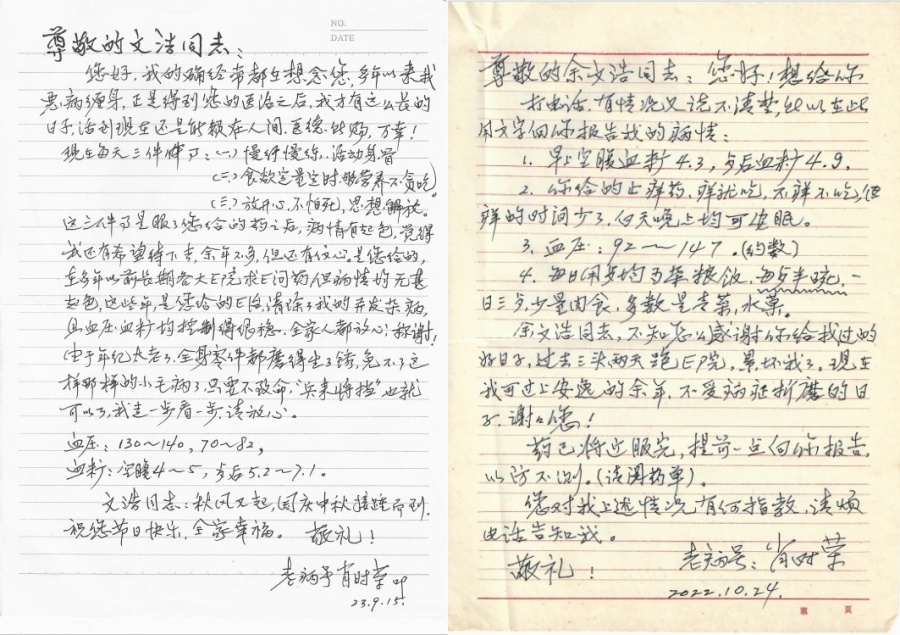 NO.
DATE
尊敬的文浩同志：
您好，我的确经常都在想念您，多年以来我
患病缠身，正是得到您的医治之后，我才有这么长的
日子，活到现在还是能赖在人间。医德所赐，万幸！
现在每天三件事了：（一）慢行慢练，活动身骨
（二）食饮定量定时，够营养不贪吃
（三）放开心，不怕死，思想解放。
这三件事是服了您给的药之后，病情有起色，觉得
我还有希望待下去，余年不多，但还有仗心，是您给的，
在多年以前长期各大医院求医问药但病情均无甚
起色，这些年，是您给的医治，清除了我的并发杂病，
且血压血糖均控制得很稳，全家人都放心，称谢！
由于年纪太老了，全身零件都磨得生了锈，免不了这
样那样的小毛病了，只要不致命，“兵来将挡”也就
可以了，我走一步看一步，请放心。
血压：130～140，70～82，
血糖：空腹4～5，当后5.2～7.1。
文浩同志：秋风又起，国庆中秋接踵而到，
祝您节日快乐，全家幸福。 敬礼！
老病号 肖时荣 叩
23.9.15.
尊敬的余文浩同志：您好！想给你
打电话，有情况又说不清楚，所以在此
用文字向你报告我的病情：
1. 早上空腹血糖4.3，当后血糖4.9。
2. 你给的止痒药，痒就吃，不痒不吃，但
痒的时间少了，白天晚上均可安眠。
3. 血压：92～147。（约数）
4. 每日用当均为杂粮饭，每当半碗，一
日三当，少量肉食，多数是青菜，水菓。
余文浩同志，不知怎么感谢你给我过的
好日子，过去三头两天跑医院，累坏我了。现在
我可过上安逸的余年，不受病症折磨的日
子，谢谢您！
药已将近服完，提前一点向你报告，
以防不测。（请阅药单）
您对我上述情况有何指教，请烦
电话告知我。
敬礼！ 老病号：肖时荣
2022.10.24.
第 頁